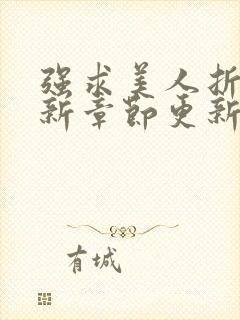 强求美人折
新章节更新
有城